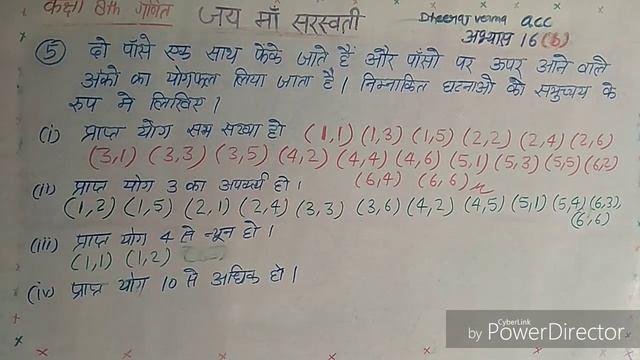 कक्षा 8th गणित
जय माँ सरस्वती
Dheeraj verma acc
अभ्यास 16(b)
(5) दो पाँसे एक साथ फेंके जाते हैं और पाँसो पर ऊपर आने वाले
अंको का योगफल लिया जाता है। निम्नांकित घटनाओ को समुच्चय के
रुप मे लिखिए।
(i) प्राप्त योग सम सख्या हो (1,1) (1,3) (1,5) (2,2) (2,4) (2,6)
(3,1) (3,3) (3,5) (4,2) (4,4) (4,6) (5,1) (5,3) (5,5) (6,2)
(6,4) (6,6)
(ii) प्राप्त योग 3 का अपवर्त्य हो।
(1,2) (1,5) (2,1) (2,4) (3,3) (3,6) (4,2) (4,5) (5,1) (5,4) (6,3),
(6,6)
(iii) प्राप्त योग 4 से न्यून हो।
(1,1) (1,2)
(iv) प्राप्त योग 10 से अधिक हो।
CyberLink
by PowerDirector